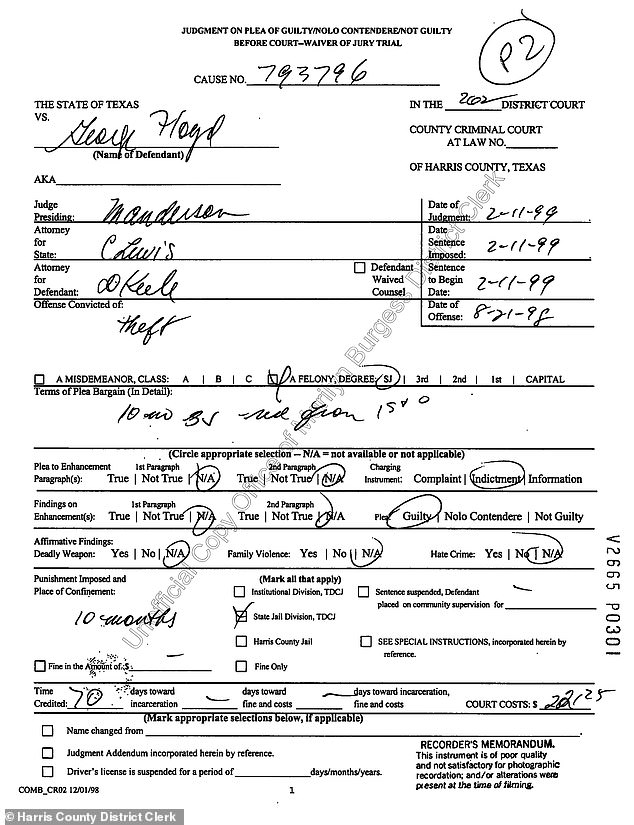 JUDGMENT ON PLEA OF GUILTY/NOLO CONTENDERE/NOT GUILTY
BEFORE COURT–WAIVER OF JURY TRIAL
P2
CAUSE NO. 793796
THE STATE OF TEXAS
VS.
George Floyd
(Name of Defendant)
AKA
IN THE 202 DISTRICT COURT
COUNTY CRIMINAL COURT
AT LAW NO.
OF HARRIS COUNTY, TEXAS
Judge
Presiding: Manderson
Date of
Judgment: 2-11-99
Attorney
for
State: C Lewis
Date
Sentence
Imposed: 2-11-99
Attorney
for
Defendant: D Keele
Defendant
Waived
Counsel
Sentence
to Begin
Date: 2-11-99
Offense Convicted of:
theft
Date of
Offense: 8-21-98
A MISDEMEANOR, CLASS: A | B | C A FELONY, DEGREE: SJ | 3rd | 2nd | 1st | CAPITAL
Terms of Plea Bargain (In Detail):
10 mo SJ red from 1st
(Circle appropriate selection – N/A = not available or not applicable)
Plea to Enhancement 1st Paragraph 2nd Paragraph Charging
Paragraph(s): True | Not True | N/A True | Not True | N/A Instrument: Complaint | Indictment | Information
Findings on 1st Paragraph 2nd Paragraph
Enhancement(s): True | Not True | N/A True | Not True | N/A Plea: Guilty | Nolo Contendere | Not Guilty
Affirmative Findings:
Deadly Weapon: Yes | No | N/A Family Violence: Yes | No | N/A Hate Crime: Yes | No | N/A
Punishment Imposed and
Place of Confinement:
10 months
(Mark all that apply)
Institutional Division, TDCJ
State Jail Division, TDCJ
Harris County Jail
Fine Only
Sentence suspended, Defendant
placed on community supervision for
SEE SPECIAL INSTRUCTIONS, incorporated herein by
reference.
Fine in the Amount of: $
Time
Credited: 70 days toward
incarceration
days toward
fine and costs
days toward incarceration,
fine and costs
COURT COSTS: $
(Mark appropriate selections below, if applicable)
Name changed from
Judgment Addendum incorporated herein by reference.
Driver's license is suspended for a period of days/months/years.
RECORDER'S MEMORANDUM.
This instrument is of poor quality
and not satisfactory for photographic
recordation; and/or alterations were
present at the time of filming.
COMB_CR02 12/01/98
1
V2665 P0301
Unofficial Copy Office of Marilyn Burgess District Clerk
© Harris County District Clerk